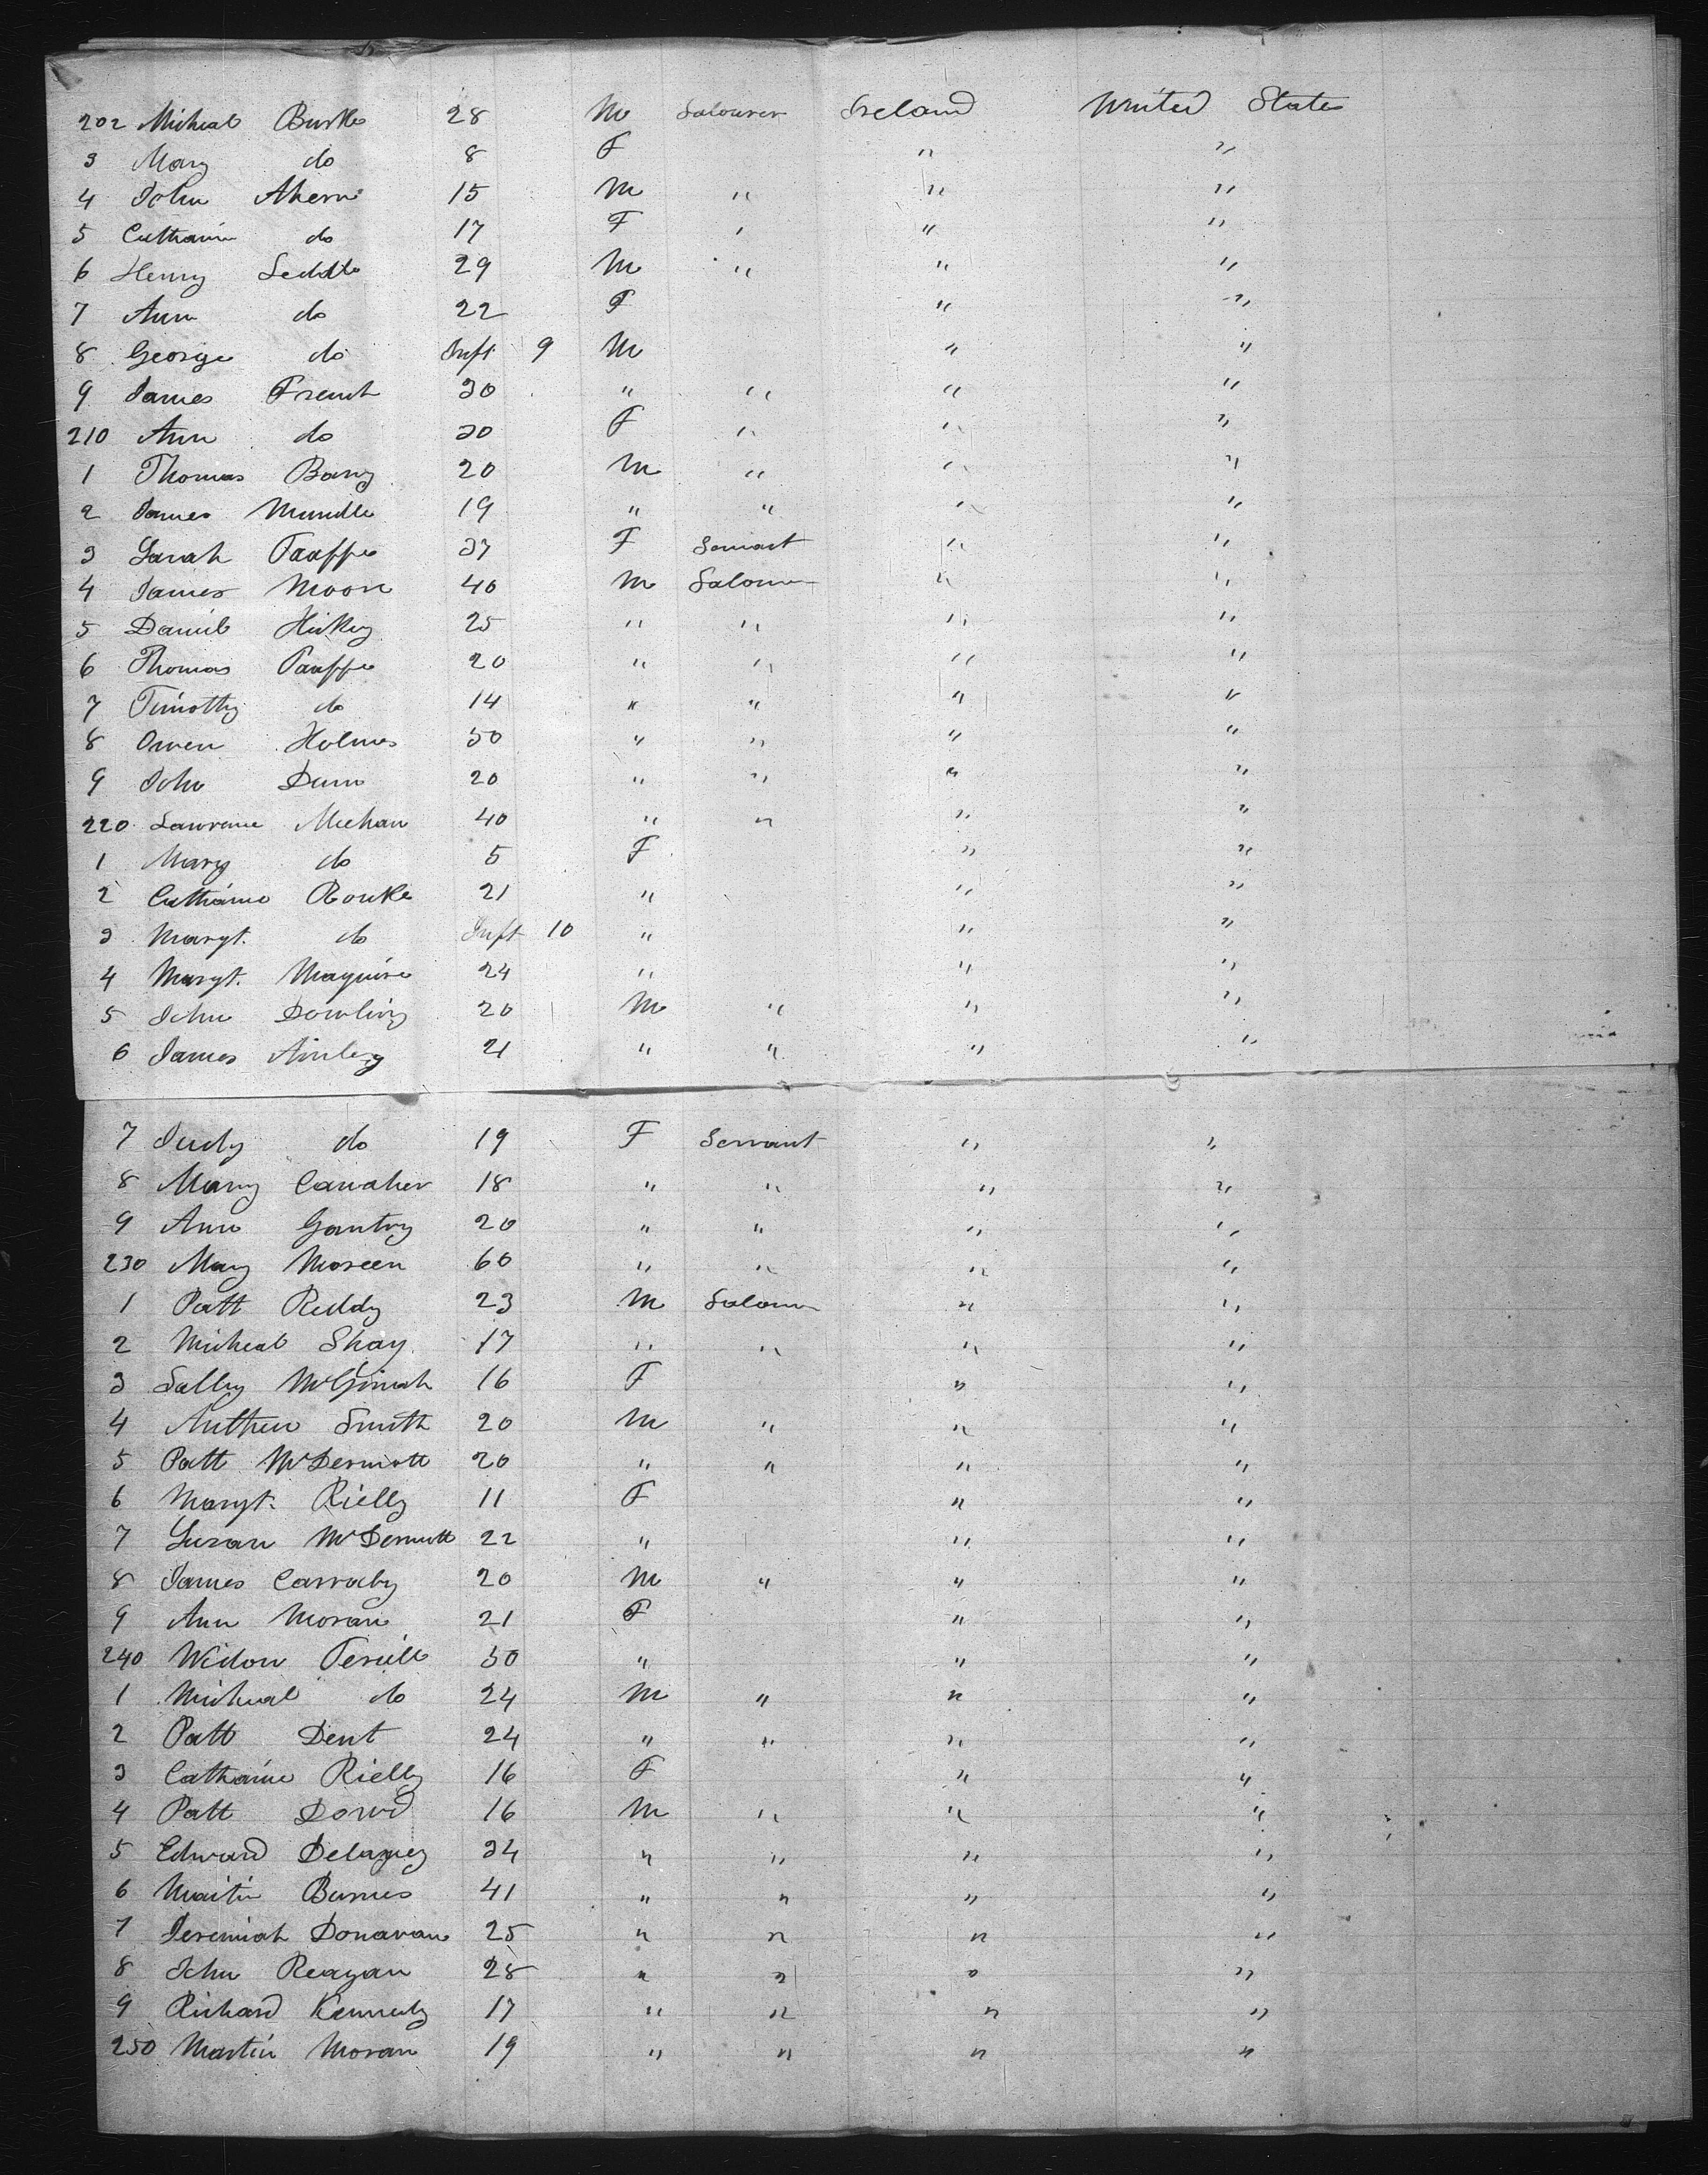 202 Micheal Burke 28 M Labourer Ireland United States
3 Mary do 8 F " "
4 John Ahern 15 M " " "
5 Catharine do 17 F " " "
6 Henry Liddle 29 M " " "
7 Ann do 22 F " "
8 George do Inft 9 M " "
9 James French 30 " " " "
210 Ann do 30 F " " "
1 Thomas Barry 20 M " " "
2 James Mundle 19 " " " "
3 Sarah Taaffe 37 F Servant " "
4 James Moore 40 M Labourer " "
5 Daniel Hickey 25 " " " "
6 Thomas Taaffe 20 " " " "
7 Timothy do 14 " " " "
8 Owen Holmes 50 " " " "
9 John Dunn 20 " " " "
220 Lawrence Meehan 40 " " " "
1 Mary do 5 F " "
2 Catharine Rourke 21 " " "
3 Margt. do Inft 10 " " "
4 Margt. Maguire 24 " " "
5 John Dowling 20 M " " "
6 James Ainley 21 " " " "
7 Judy do 19 F Servant " "
8 Mary Carraher 18 " " " "
9 Ann Gantry 20 " " " "
230 Mary Moreen 60 " " " "
1 Patt Reddy 23 M Labourer " "
2 Micheal Shay 17 " " " "
3 Sally 16 F " "
4 Smith 20 M " " "
5 Patt McDermott 20 " " " "
6 Margt. Rielly 11 F " "
7 Susan McDermott 22 " " "
8 James 20 M " " "
9 Ann Moran 21 F " "
240 Widow 50 " " "
1 Micheal do 24 M " " "
2 Patt Dent 24 " " " "
3 Catharine Rielly 16 F " "
4 Patt Dowd 16 M " " "
5 Edward Delaney 34 " " " "
6 Martin Burnes 41 " " " "
7 Jeremiah Donavan 25 " " " "
8 John Reagan 28 " " " "
9 Richard Kennedy 17 " " " "
250 Martin Moran 19 " " " "